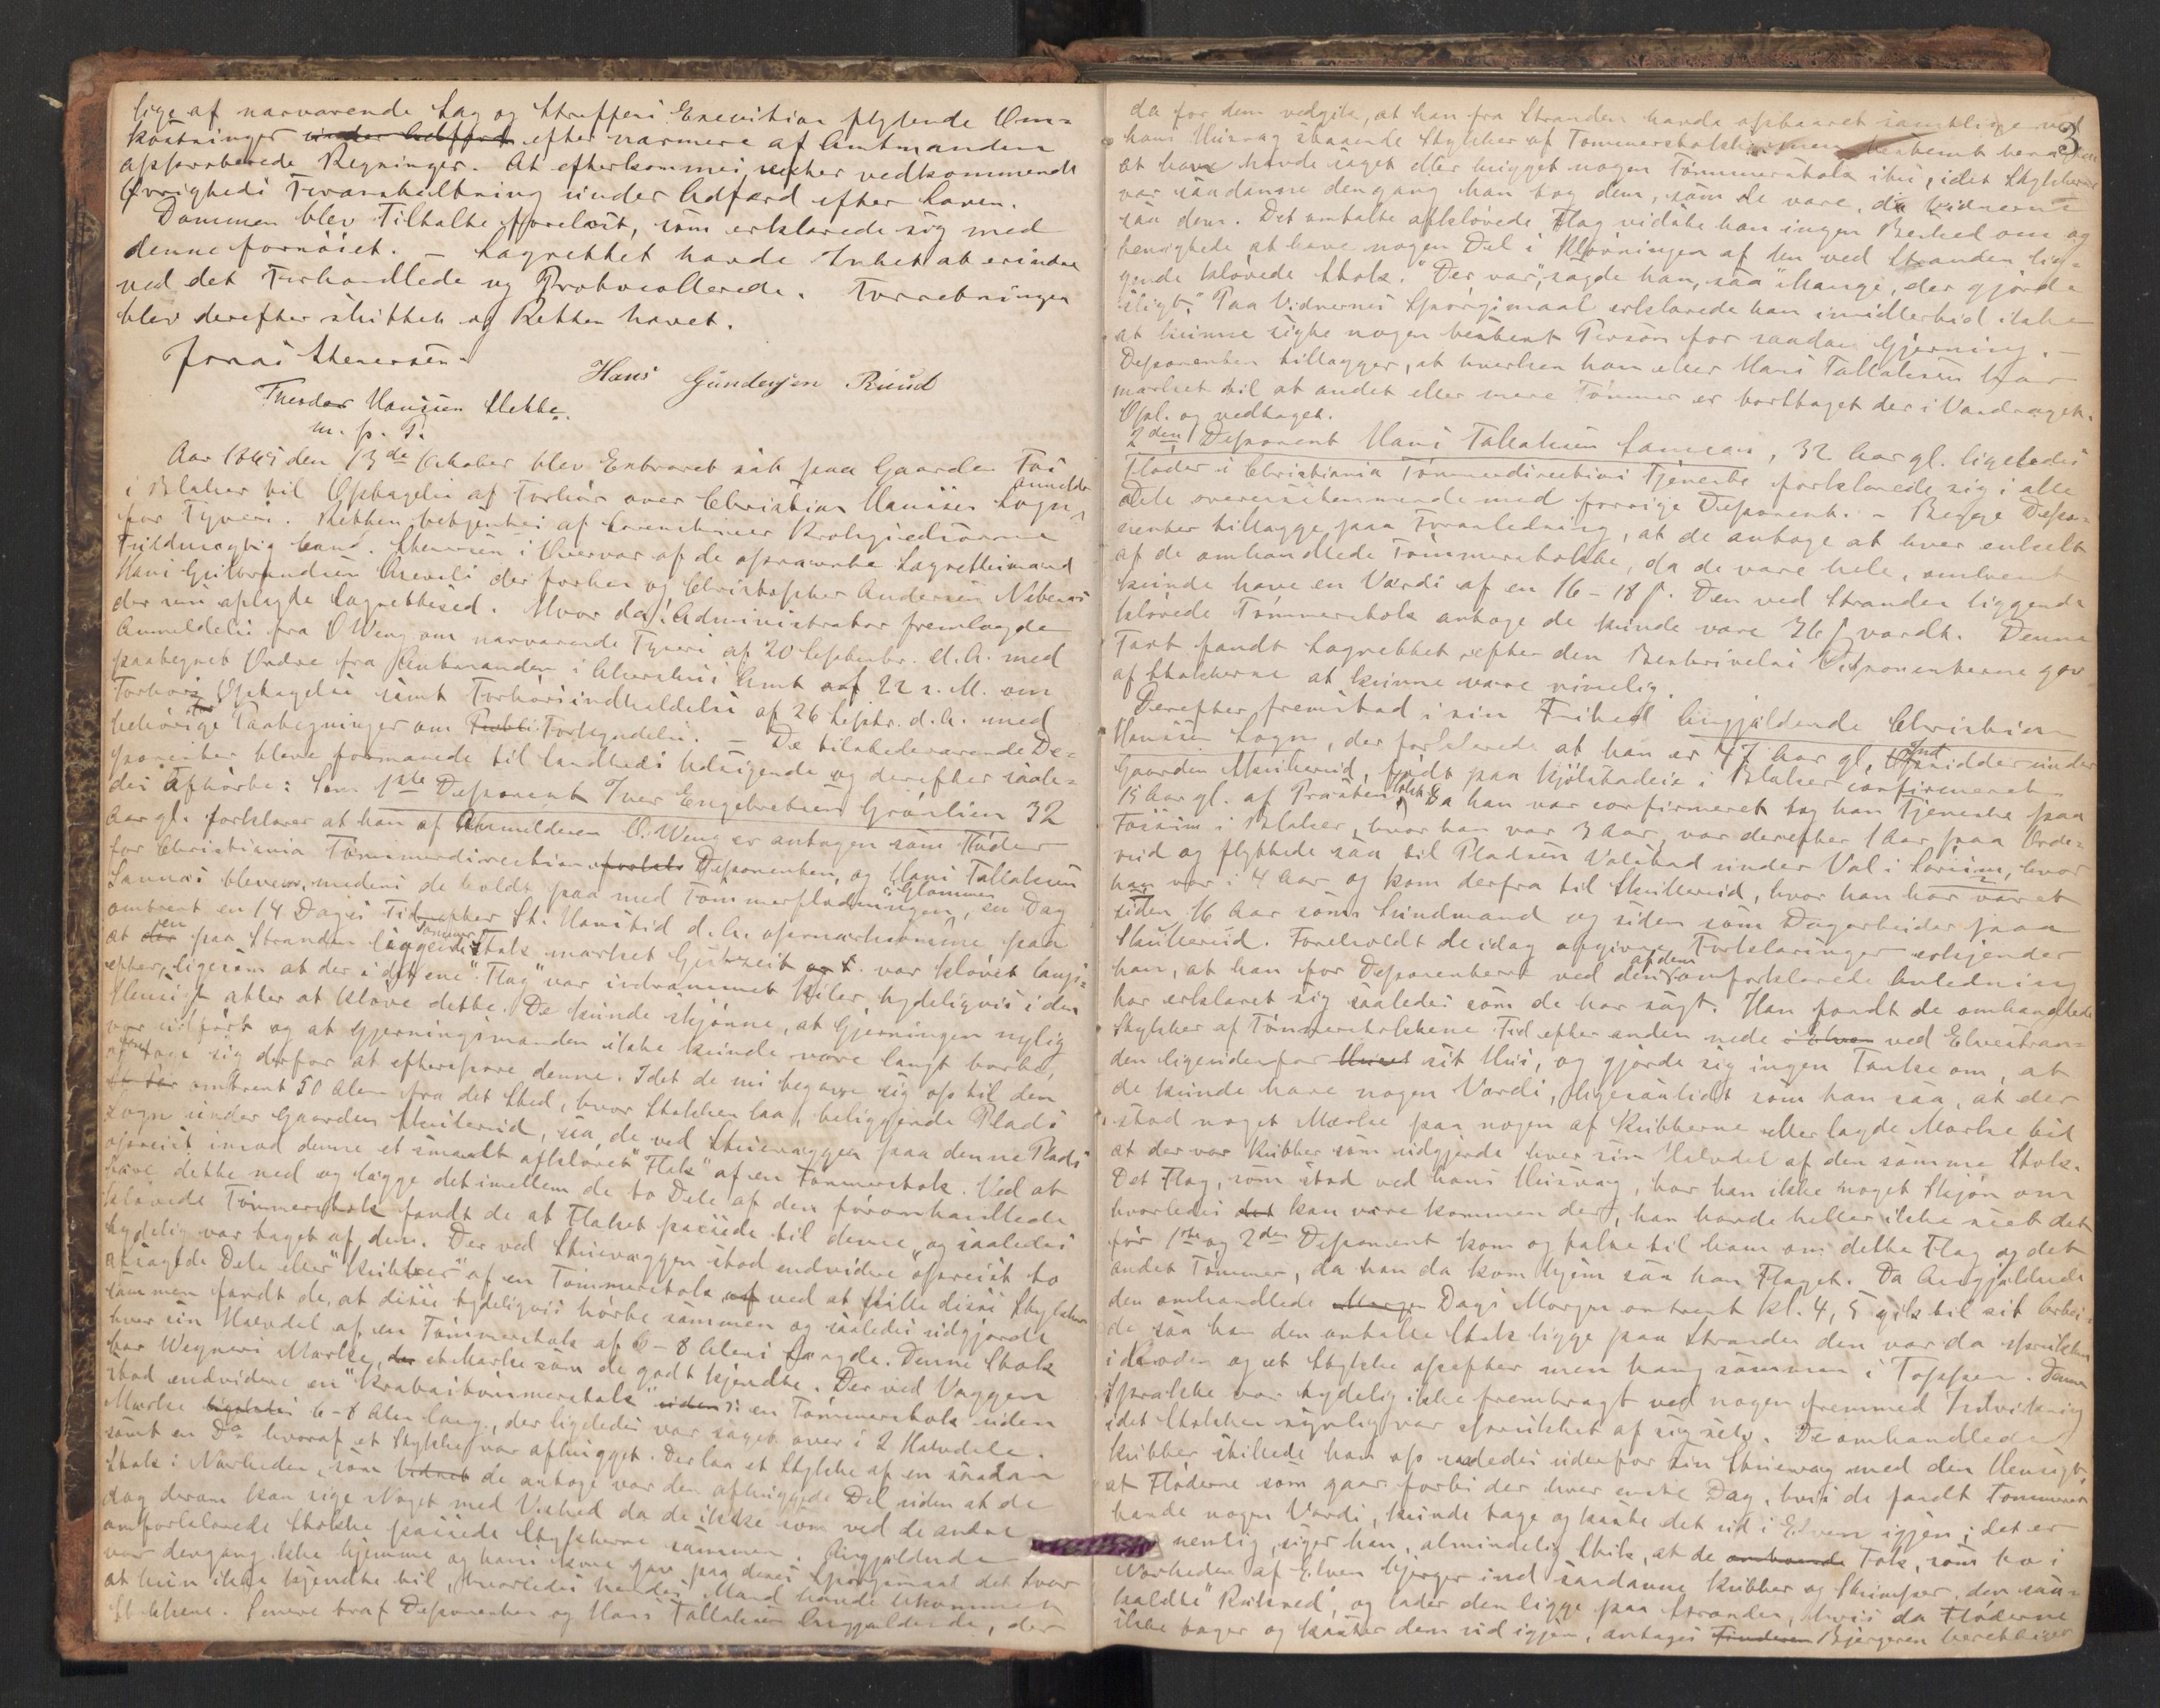 lige af nærværende Sag og Straffens Execution flydende Om-
kostninger under Adfærd efter nærmere af Amtmanden
approberede Regninger. At efterkommes under vedkommende
Øvrigheds Foranstaltning under Adfærd efter Loven.
Dommen blev Tiltalte forelæst, som erklærede sig med
denne fornøiet. – Lagrettet havde Intet at erindre
ved det Forhandlede og Protocollerede. Forretningen
blev derefter sluttet og Retten hævet.
Jonas Stenersen
Hans Gundersen Ruud
Theodor Hansen Slekke
m. p. P.
Aar 1865 den 13de October blev Extraret sat paa Gaarden Foss
i Blaker til Optagelse af Forhør over Christian Hansen Sogn, anmeldt
for Tyveri. Retten betjentes af Sorenskriver Krohgs edsvorne
Fuldmægtig Cand. Stenersen i Overvær af de opnævnte Lagrettesmænd
Hans Gulbrandsen Asevels der forhen og Christopher Andersen Nebenæs
der nu aflagde Lagretteseed. Hvor da: Administrator fremlagde
Anmeldelse fra O Weng om nærværende Tyveri af 20 September d. A. med
paategnet Ordre fra Amtmanden i Akershus Amt af 22 s. M. om
Forhørs Optagelse samt Forhørsindkaldelse af 26 Septbr. d. A. med
behørige Paategninger om Forkyndelse. – De tilstedeværende De-
ponenter bleve formanede til Sandheds Udsigende og derefter saale-
des afhørte: Som 1ste Deponent Iver Engebretsen Grønlien 32
Aar gl. forklarer at han af Anmelderen O. Weng er antagen som Fløder
for Christiania Tømmerdirection. Deponenten, og Hans Tallaksen
Sannæs bleve, medens de holdt paa med Tømmerflødningen i Glommen, en Dag
omtrent en 14 Dages Tid efter St. Hanstid d. A. opmærksomme paa
at en paa Stranden liggende Tømmer Stok mærket Gutzeit & C. var kløvet langs-
efter, ligesom at der i det ene "Flag" var indrammet Kiler tydeligvis i den
Hensigt atter at kløve dette. De kunde skjønne, at Gjerningen nylig
var udført og at Gjerningsmanden ikke kunde være langt borte,
foretoge sig derfor at efterspore denne. Idet de nu begave sig op til den
omtrent 50 Alen fra det Sted, hvor Stokken laa, beliggende Plads
Sogn under Gaarden Skullerud, saa de ved Stuevæggen paa denne Plads
opreist imod denne et smalt afkløvet "Flak" af en Tømmerstok. Ved at
tage dette ned og lægge det imellem de to Dele af den føromhandlede
kløvede Tømmerstok fandt de at Flaket passede til denne og saaledes
tydelig var taget af den. Der ved Stuevæggen stod endvidere opreist to
afsagede Dele eller "Kubber" af en Tømmerstok ved at stille disse Stykker
sammen fandt de, at disse tydeligvis hørte sammen og saaledes udgjorde
hver sin Halvdel af en Tømmerstok af 6 – 8 Alens Længde. Denne Stok
har Wegners Mærke, et Mærke som de godt kjendte. Der ved Væggen
stod endvidere en "Krabastømmerstok" : en Tømmerstok uden
Mærke 6 – 8 Alen lang, der ligeledes var saget over i 2 Halvdele.
samt en Do hvoraf et Stykke var afhugget. Der laa et Stykke af en saadan
Stok i Nærheden, som de antoge var den afhuggede Del uden at de
dog derom kan sige Noget med Vished da de ikke som ved de andre
omforklarede Stokke passede Stykkerne sammen. Angjældende
var dengang ikke hjemme og hans Kone gav paa deres Spørgsmaal det Svar
at hun ikke kjendte til, hvorledes hendes Mand havde bekommet
Stokkene. Senere traf Deponenten og Hans Tallaksen Angjældende, der
3
da for dem vedgik, at han fra Stranden havde opbaaret samtlige ved
hans Husvæg staaende Stykker af Tømmerstokke, men bestemt benægtede
at han havde saget eller hugget nogen Tømmerstok itu, idet Stykkerne
var saadanne dengang han tog dem, som de vare, da Vidnerne
saa dem. Det omtalte afkløvede Flag vidste han ingen Besked om og
benægtede at have nogen Del i Kløvningen af den ved Stranden lig-
gende kløvede Stok. "Der var", sagde han, "saa Mange, der gjorde
sligt." Paa Vidnernes Spørgsmaal erklærede han imidlertid ikke
at kunne sigte nogen bestemt Person for saadan Gjerning. –
Deponenten tillægger, at hverken han eller Hans Tallaksen har
mærket til at andet eller mere Tømmer er borttaget der i Vandraget.
Opl. og vedtaget.
2den Deponent Hans Tallaksen Sannæs, 32 Aar gl. ligeledes
Fløder i Christiania Tømmerdirections Tjeneste forklarede sig i alle
Dele overensstemmende med forrige Deponent. – Begge Depo-
nenter tillægge paa Foranledning, at de antoge at hver enkelt
af de omhandlede Tømmerstokke, da de vare hele, omtrent
kunde have en Værdi af en 16 – 18 ß. Den ved Stranden liggende
kløvede Tømmerstok antoge de kunde være 36 ß værdt. Denne
Taxt fandt Lagrettet efter den Beskrivelse Deponenterne gav
af Stokkerne at kunne være rimelig.
Derefter fremstod i sin Frihed Angjældende Christian
Hansen Sogn, der forklarede at han er 47 Aar gl., Opsidder under
Gaarden Skullerud, født paa Kjølstadeie i Blaker confirmeret
15 Aar gl. af Præsten. Da han var confirmeret tog han Tjeneste paa
Fossum i Blaker, hvor han var 3 Aar, var derefter 1 Aar paa Orde-
rud og flyttede saa til Pladsen Valstad under Val i Sørum, hvor
han var i 4 Aar og kom derfra til Skullerud, hvor han har været
siden 16 Aar som Husmand og siden som Dagarbeider paa
Skullerud. Foreholdt de idag afgivne Forklaringer erkjender
han, at han for Deponenterne ved den af dem omforklarede Anledning
har erklæret sig saaledes som de har sagt. Han fandt de omhandlede
Stykker af Tømmerstokkene Tid efter anden nede ved Elvestran-
den ligeudenfor sit Hus, og gjorde sig ingen Tanke om, at
de kunde have nogen Værdi, ligesaalidt som han saa, at der
stod noget Mærke paa nogen af Kubberne eller lagde Mærke til
at der var Kubber som udgjorde hver sin Halvdel af den samme Stok.
Det Flag, som stod ved hans Husvæg, har han ikke noget Skjøn om
hvorledes kan være kommen der, han havde heller ikke seet det
før 1ste og 2den Deponent kom og talte til ham om dette Flag og det
andet Tømmer, da han da kom hjem saa han Flaget. Da Angjældende
den omhandlede Dags Morgen omtrent Kl. 4, 5 gik til sit Arbei-
de saa han den omtalte Stok ligge paa Stranden den var da sprukken
i Roden og et Stykke opefter men hang sammen i Toppen. Denne
Sprække var tydelig ikke frembragt ved nogen fremmed Indvirkning
idet Stokken synlig var sprukket af sig selv. De omhandlede
Kubber stillede han op saaledes udenfor sin Stuevæg med den Hensigt,
at Fløderne som gaar forbi der hver eneste Dag, hvis de fandt Tømmeret
havde nogen Værdi, kunde tage og kaste det ud i Elven igjen; det er
nemlig, siger han, almindelig Skik, at de Folk, som bo i
Nærheden af Elven bjerger ind saadanne Kubber og Skumper, den saa-
kaldte "Rakved", og lader den ligge paa Stranden, hvis da Fløderne
ikke tager og kaster dem ud igjen, antages Bjergeren berettiget